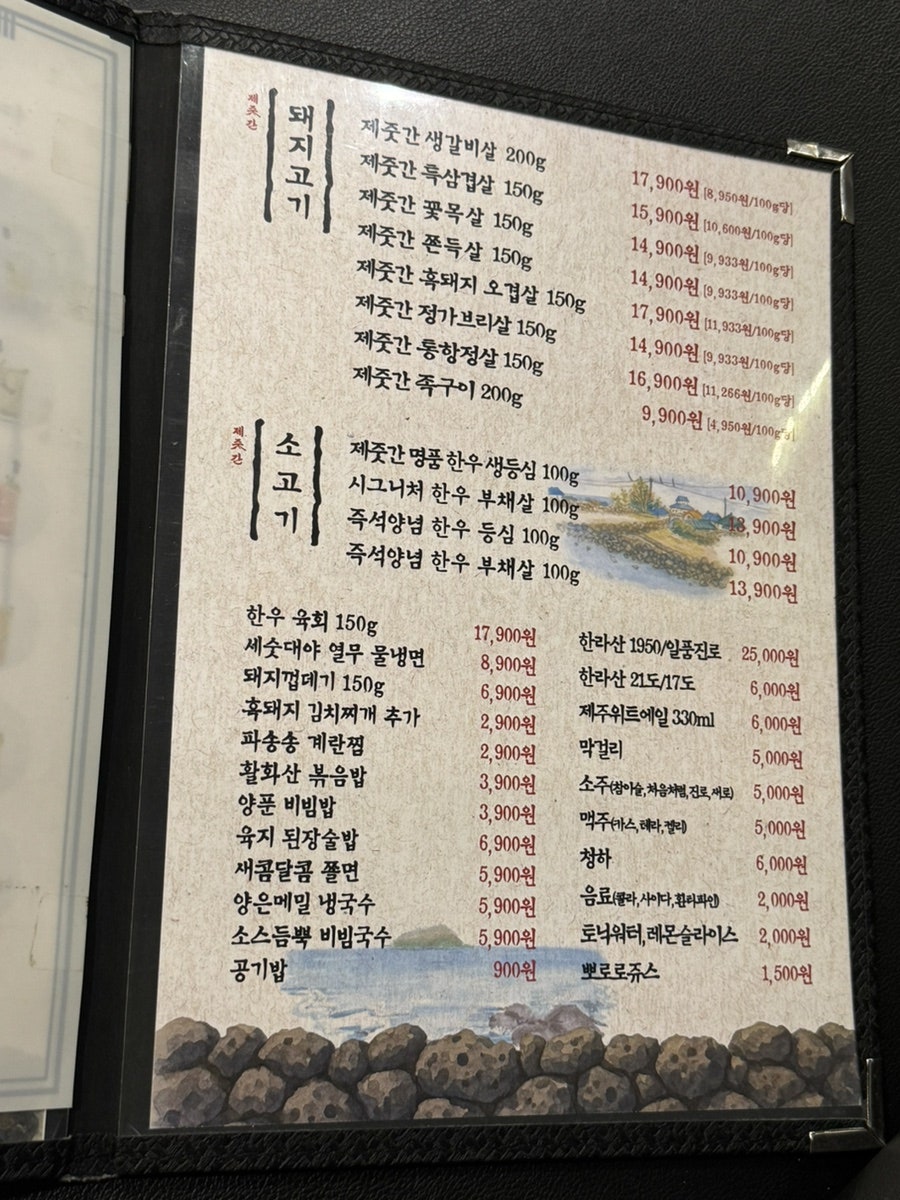 제줏간
돼지고기
제줏간 생갈비살 200g 17,900원 [8,950원/100g당]
제줏간 흑삼겹살 150g 15,900원 [10,600원/100g당]
제줏간 꽃목살 150g 14,900원 [9,933원/100g당]
제줏간 쫀득살 150g 14,900원 [9,933원/100g당]
제줏간 흑돼지 오겹살 150g 17,900원 [11,933원/100g당]
제줏간 정가브리살 150g 14,900원 [9,933원/100g당]
제줏간 통항정살 150g 16,900원 [11,266원/100g당]
제줏간 족구이 200g 9,900원 [4,950원/100g당]
제줏간
소고기
제줏간 명품 한우 생등심 100g 10,900원
시그니처 한우 부채살 100g 13,900원
즉석양념 한우 등심 100g 10,900원
즉석양념 한우 부채살 100g 13,900원
한우 육회 150g 17,900원
세숫대야 열무 물냉면 8,900원
돼지껍데기 150g 6,900원
흑돼지 김치찌개 추가 2,900원
파송송 계란찜 2,900원
활화산 볶음밥 3,900원
양푼 비빔밥 3,900원
육지 된장술밥 6,900원
새콤달콤 쫄면 5,900원
양은메밀 냉국수 5,900원
소스듬뿍 비빔국수 5,900원
공기밥 900원
한라산 1950/일품진로 25,000원
한라산 21도/17도 6,000원
제주위트에일 330ml 6,000원
막걸리 5,000원
소주(참이슬,처음처럼,진로,새로) 5,000원
맥주(카스, 테라, 켈리) 5,000원
청하 6,000원
음료(콜라, 사이다, 환타파인) 2,000원
토닉워터,레몬슬라이스 2,000원
뽀로로쥬스 1,500원